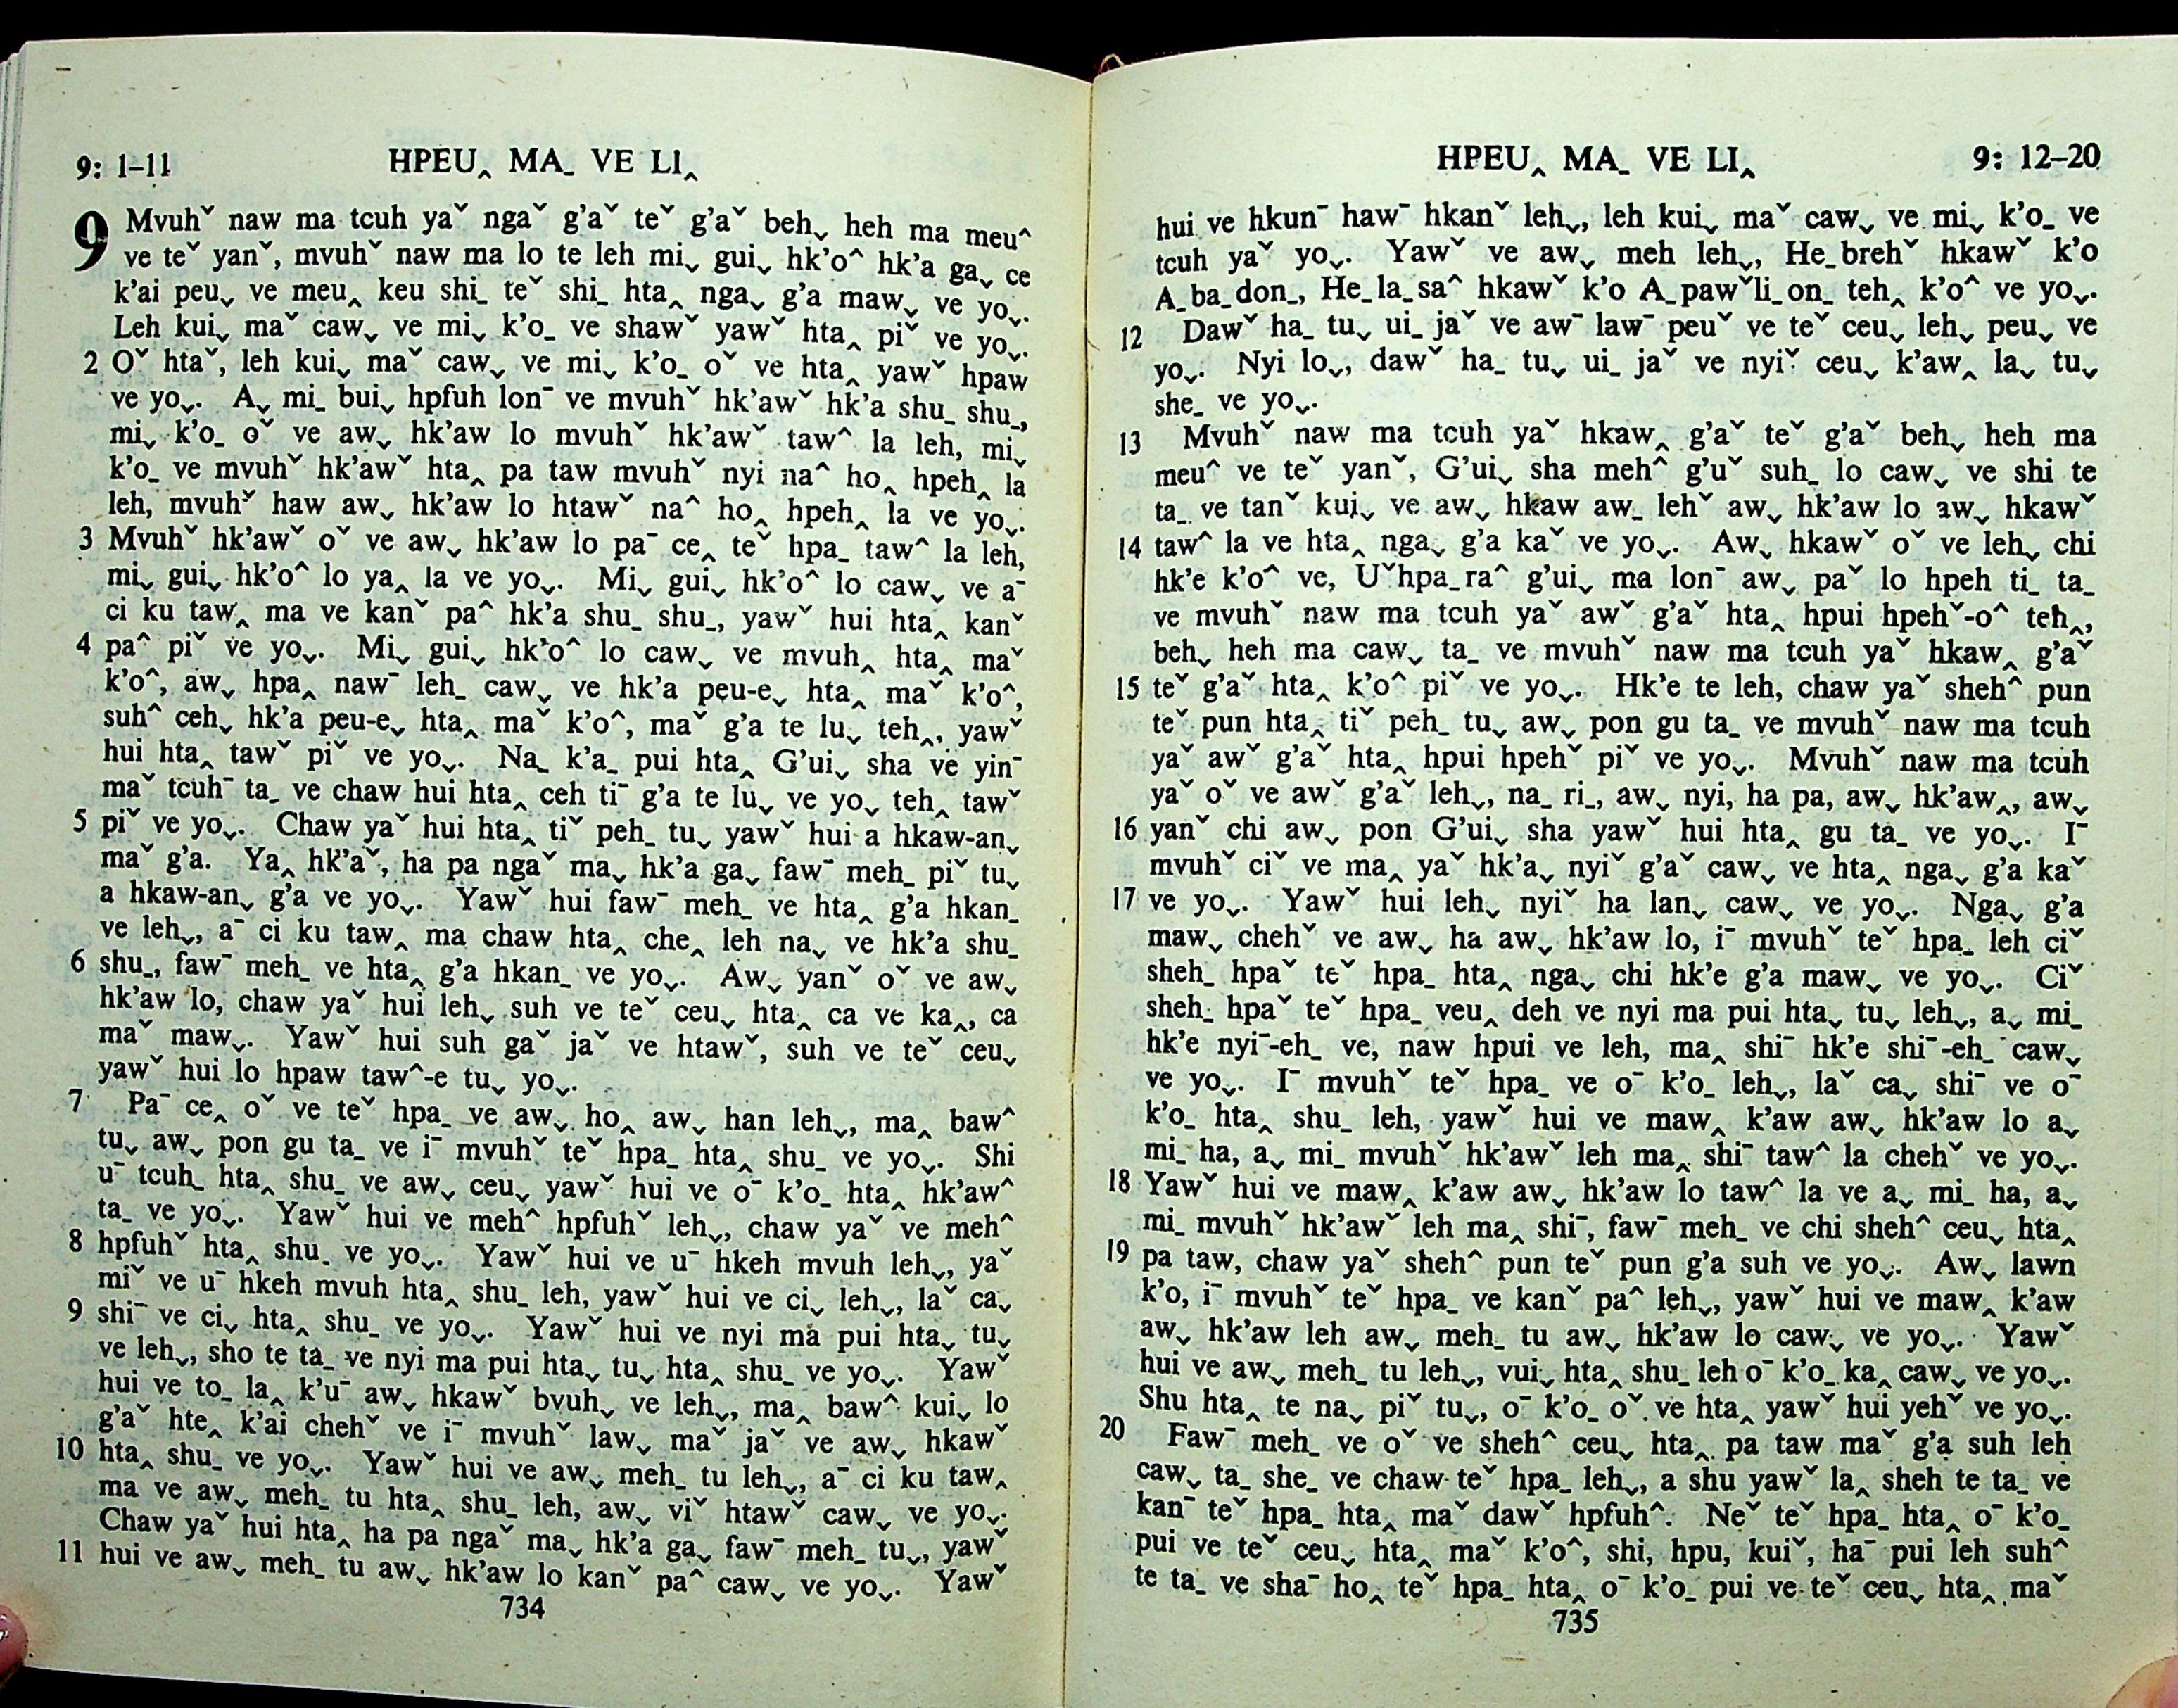 9: 1–11 HPEU‸ MA_ VE LI‸
9 Mvuhˇ naw ma tcuh yaˇ ngaˇ g’aˇ teˇ g’aˇ beh˯ heh ma meu^
ve teˇ yanˇ, mvuhˇ naw ma lo te leh mi˯ gui˯ hk’o^ hk’a ga˯ ce
k’ai peu˯ ve meu‸ keu shi_ teˇ shi_ hta‸ nga˯ g’a maw˯ ve yo˯.
Leh kui˯ maˇ caw˯ ve mi˯ k’o_ ve shawˇ yawˇ hta‸ piˇ ve yo˯.
2 Oˇ htaˇ, leh kui˯ maˇ caw˯ ve mi˯ k’o_ oˇ ve hta‸ yawˇ hpaw
ve yo˯. A˯ mi_ bui˯ hpfuh lonˉ ve mvuhˇ hk’awˇ hk’a shu_ shu_,
mi˯ k’o_ oˇ ve aw˯ hk’aw lo mvuhˇ hk’awˇ taw^ la leh, mi˯
k’o_ ve mvuhˇ hk’awˇ hta‸ pa taw mvuhˇ nyi na^ ho‸ hpeh‸ la
leh, mvuhˇ haw aw˯ hk’aw lo htawˇ na^ ho‸ hpeh‸ la ve yo˯.
3 Mvuhˇ hk’awˇ oˇ ve aw˯ hk’aw lo paˉ ce‸ teˇ hpa_ taw^ la leh,
mi˯ gui˯ hk’o^ lo ya‸ la ve yo˯. Mi˯ gui˯ hk’o^ lo caw˯ ve aˉ
ci ku taw‸ ma ve kanˇ pa^ hk’a shu_ shu_, yawˇ hui hta‸ kanˇ
4 pa^ piˇ ve yo˯. Mi˯ gui˯ hk’o^ lo caw˯ ve mvuh‸ hta‸ maˇ
k’o^, aw˯ hpa‸ nawˉ leh_ caw˯ ve hk’a peu-e˯ hta‸ maˇ k’o^,
suh^ ceh˯ hk’a peu-e˯ hta‸ maˇ k’o^, maˇ g’a te lu˯ teh‸, yawˇ
hui hta‸ tawˇ piˇ ve yo˯. Na_ k’a_ pui hta‸ G’ui˯ sha ve yinˉ
maˇ tcuhˉ ta_ ve chaw hui hta‸ ceh tiˉ g’a te lu˯ ve yo˯ teh‸ tawˇ
5 piˇ ve yo˯. Chaw yaˇ hui hta‸ tiˇ peh_ tu˯ yawˇ hui a hkaw-an˯
maˇ g’a. Ya‸ hk’aˇ, ha pa ngaˇ ma˯ hk’a ga˯ fawˉ meh_ piˇ tu˯
a hkaw-an˯ g’a ve yo˯. Yawˇ hui fawˉ meh_ ve hta‸ g’a hkan_
ve leh˯, aˉ ci ku taw‸ ma chaw hta‸ che‸ leh na˯ ve hk’a shu_
6 shu_, fawˉ meh_ ve hta‸ g’a hkan_ ve yo˯. Aw˯ yanˇ oˇ ve aw˯
hk’aw lo, chaw yaˇ hui leh˯ suh ve teˇ ceu˯ hta‸ ca ve ka‸, ca
maˇ maw˯. Yawˇ hui suh gaˇ jaˇ ve htawˇ, suh ve teˇ ceu˯
yawˇ hui lo hpaw taw^-e tu˯ yo˯.
7 Paˉ ce‸ oˇ ve teˇ hpa_ ve aw˯ ho‸ aw˯ han leh˯, ma‸ baw^
tu˯ aw˯ pon gu ta_ ve iˉ mvuhˇ teˇ hpa_ hta‸ shu_ ve yo˯. Shi
uˉ tcuh_ hta‸ shu_ ve aw˯ ceu˯ yawˇ hui ve oˉ k’o_ hta‸ hk’aw^
ta_ ve yo˯. Yawˇ hui ve meh^ hpfuhˇ leh˯, chaw yaˇ ve meh^
8 hpfuhˇ hta‸ shu_ ve yo˯. Yawˇ hui ve uˉ hkeh mvuh leh˯, yaˇ
miˇ ve uˉ hkeh mvuh hta‸ shu_ leh, yawˇ hui ve ci˯ leh˯, laˇ ca˯
9 shiˉ ve ci˯ hta‸ shu_ ve yo˯. Yawˇ hui ve nyi ma pui hta˯ tu˯
ve leh˯, sho te ta_ ve nyi ma pui hta˯ tu˯ hta‸ shu_ ve yo˯. Yawˇ
hui ve to_ la‸ k’uˉ aw˯ hkawˇ bvuh˯ ve leh˯, ma‸ baw^ kui˯ lo
g’aˇ hte‸ k’ai chehˇ ve iˉ mvuhˇ law˯ maˇ jaˇ ve aw˯ hkawˇ
10 hta‸ shu_ ve yo˯. Yawˇ hui ve aw˯ meh_ tu leh˯, aˉ ci ku taw‸
ma ve aw˯ meh_ tu hta‸ shu_ leh, aw˯ viˇ htawˇ caw˯ ve yo˯.
Chaw yaˇ hui hta‸ ha pa ngaˇ ma˯ hk’a ga˯ fawˉ meh_ tu˯, yawˇ
11 hui ve aw˯ meh_ tu aw˯ hk’aw lo kanˇ pa^ caw˯ ve yo˯. Yawˇ
734
HPEU‸ MA_ VE LI‸ 9: 12–20
hui ve hkunˉ hawˉ hkanˇ leh˯, leh kui˯ maˇ caw˯ ve mi˯ k’o_ ve
tcuh yaˇ yo˯. Yawˇ ve aw˯ meh leh˯, He_brehˇ hkawˇ k’o
A_ba_don_, He_la_sa^ hkawˇ k’o A_pawˇli_on_ teh‸ k’o^ ve yo˯.
12 Dawˇ ha_ tu˯ ui_ jaˇ ve awˉ lawˉ peuˇ ve teˇ ceu˯ leh˯ peu˯ ve
yo˯. Nyi lo˯, dawˇ ha_ tu˯ ui_ jaˇ ve nyiˇ ceu˯ k’aw‸ la˯ tu˯
she_ ve yo˯.
13 Mvuhˇ naw ma tcuh yaˇ hkaw‸ g’aˇ teˇ g’aˇ beh˯ heh ma
meu^ ve teˇ yanˇ, G’ui˯ sha meh^ g’uˇ suh_ lo caw˯ ve shi te
ta_ ve tanˇ kui˯ ve aw˯ hkaw aw_ lehˇ aw˯ hk’aw lo aw˯ hkawˇ
14 taw^ la ve hta‸ nga˯ g’a kaˇ ve yo˯. Aw˯ hkawˇ oˇ ve leh˯ chi
hk’e k’o^ ve, Uˇhpa_ra^ g’ui˯ ma lonˉ aw˯ paˇ lo hpeh ti_ ta_
ve mvuhˇ naw ma tcuh yaˇ awˇ g’aˇ hta‸ hpui hpehˇ-o^ teh‸,
beh˯ heh ma caw˯ ta_ ve mvuhˇ naw ma tcuh yaˇ hkaw‸ g’aˇ
15 teˇ g’aˇ hta‸ k’o^ piˇ ve yo˯. Hk’e te leh, chaw yaˇ sheh^ pun
teˇ pun hta‸ tiˇ peh_ tu˯ aw˯ pon gu ta_ ve mvuhˇ naw ma tcuh
yaˇ awˇ g’aˇ hta‸ hpui hpehˇ piˇ ve yo˯. Mvuhˇ naw ma tcuh
yaˇ oˇ ve awˇ g’aˇ leh˯, na_ ri_, aw˯ nyi, ha pa, aw˯ hk’aw‸, aw˯
16 yanˇ chi aw˯ pon G’ui˯ sha yawˇ hui hta‸ gu ta_ ve yo˯. Iˉ
mvuhˇ ciˇ ve ma‸ yaˇ hk’a˯ nyiˇ g’aˇ caw˯ ve hta‸ nga˯ g’a kaˇ
17 ve yo˯. Yawˇ hui leh˯ nyiˇ ha lan˯ caw˯ ve yo˯. Nga˯ g’a
maw˯ chehˇ ve aw˯ ha aw˯ hk’aw lo, iˉ mvuhˇ teˇ hpa_ leh ciˇ
sheh_ hpaˇ teˇ hpa_ hta‸ nga˯ chi hk’e g’a maw˯ ve yo˯. Ciˇ
sheh_ hpaˇ teˇ hpa_ veu‸ deh ve nyi ma pui hta˯ tu˯ leh˯, a˯ mi_
hk’e nyiˉ-eh_ ve, naw hpui ve leh, ma‸ shiˉ hk’e shiˉ-eh_ caw˯
ve yo˯. Iˉ mvuhˇ teˇ hpa_ ve oˉ k’o_ leh˯, laˇ ca˯ shiˉ ve oˉ
k’o_ hta‸ shu_ leh, yawˇ hui ve maw‸ k’aw aw˯ hk’aw lo a˯
mi_ ha, a˯ mi_ mvuhˇ hk’awˇ leh ma‸ shiˉ taw^ la chehˇ ve yo˯.
18 Yawˇ hui ve maw‸ k’aw aw˯ hk’aw lo taw^ la ve a˯ mi_ ha, a˯
mi_ mvuhˇ hk’awˇ leh ma‸ shiˉ, fawˉ meh_ ve chi sheh^ ceu˯ hta‸
19 pa taw, chaw yaˇ sheh^ pun teˇ pun g’a suh ve yo˯. Aw˯ lawn
k’o, iˉ mvuhˇ teˇ hpa_ ve kanˇ pa^ leh˯, yawˇ hui ve maw‸ k’aw
aw˯ hk’aw leh aw˯ meh_ tu aw˯ hk’aw lo caw˯ ve yo˯. Yawˇ
hui ve aw˯ meh_ tu leh˯, vui˯ hta‸ shu_ leh oˉ k’o_ ka‸ caw˯ ve yo˯.
Shu hta‸ te na˯ piˇ tu˯, oˉ k’o_ oˇ ve hta‸ yawˇ hui yehˇ ve yo˯.
20 Fawˉ meh_ ve oˇ ve sheh^ ceu˯ hta‸ pa taw maˇ g’a suh leh
caw˯ ta_ she_ ve chaw teˇ hpa_ leh˯, a shu yawˇ la‸ sheh te ta_ ve
kanˉ teˇ hpa_ hta‸ maˇ dawˇ hpfuh^. Neˇ teˇ hpa_ hta‸ oˉ k’o_
pui ve teˇ ceu˯ hta‸ maˇ k’o^, shi, hpu, kuiˇ, haˉ pui leh suh^
te ta_ ve shaˉ ho‸ teˇ hpa_ hta‸ oˉ k’o_ pui ve teˇ ceu˯ hta‸ maˇ
735